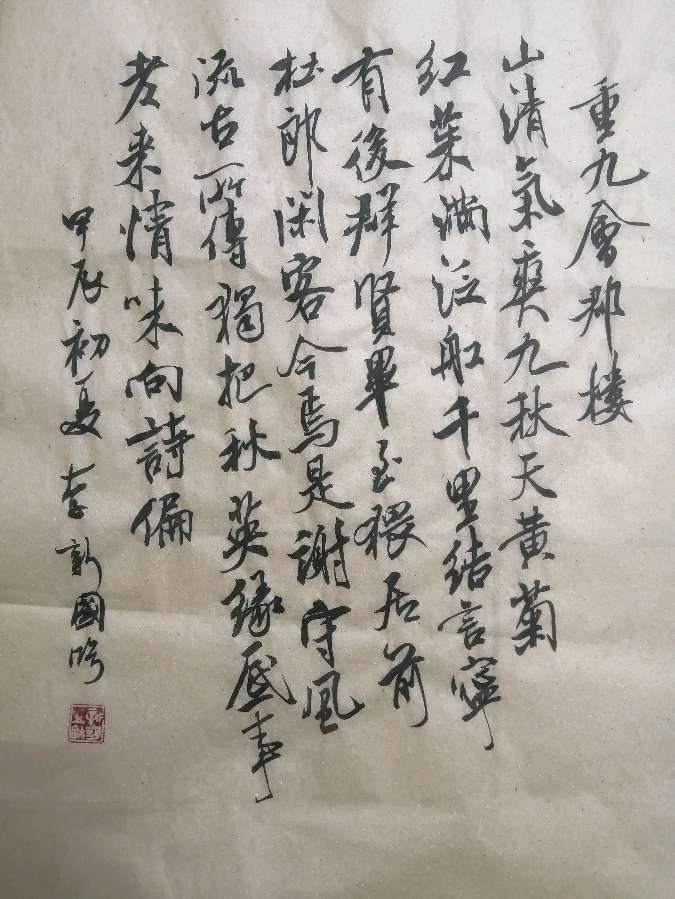 重九會郡樓
山清氣爽九秋天黄菊
红葉满泛船千里结言寧
有後群賢畢至猥居前
杜郎闲客今焉是謝守風
流古所傳獨把秋英缘底事
老来情味向詩偏
甲辰初夏李新國